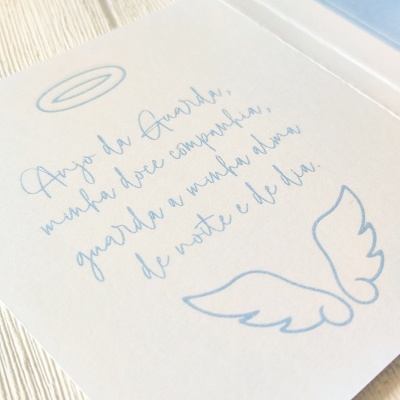 Anjo da Guarda,
minha doce companhia,
guarda a minha alma
de noite e de dia.